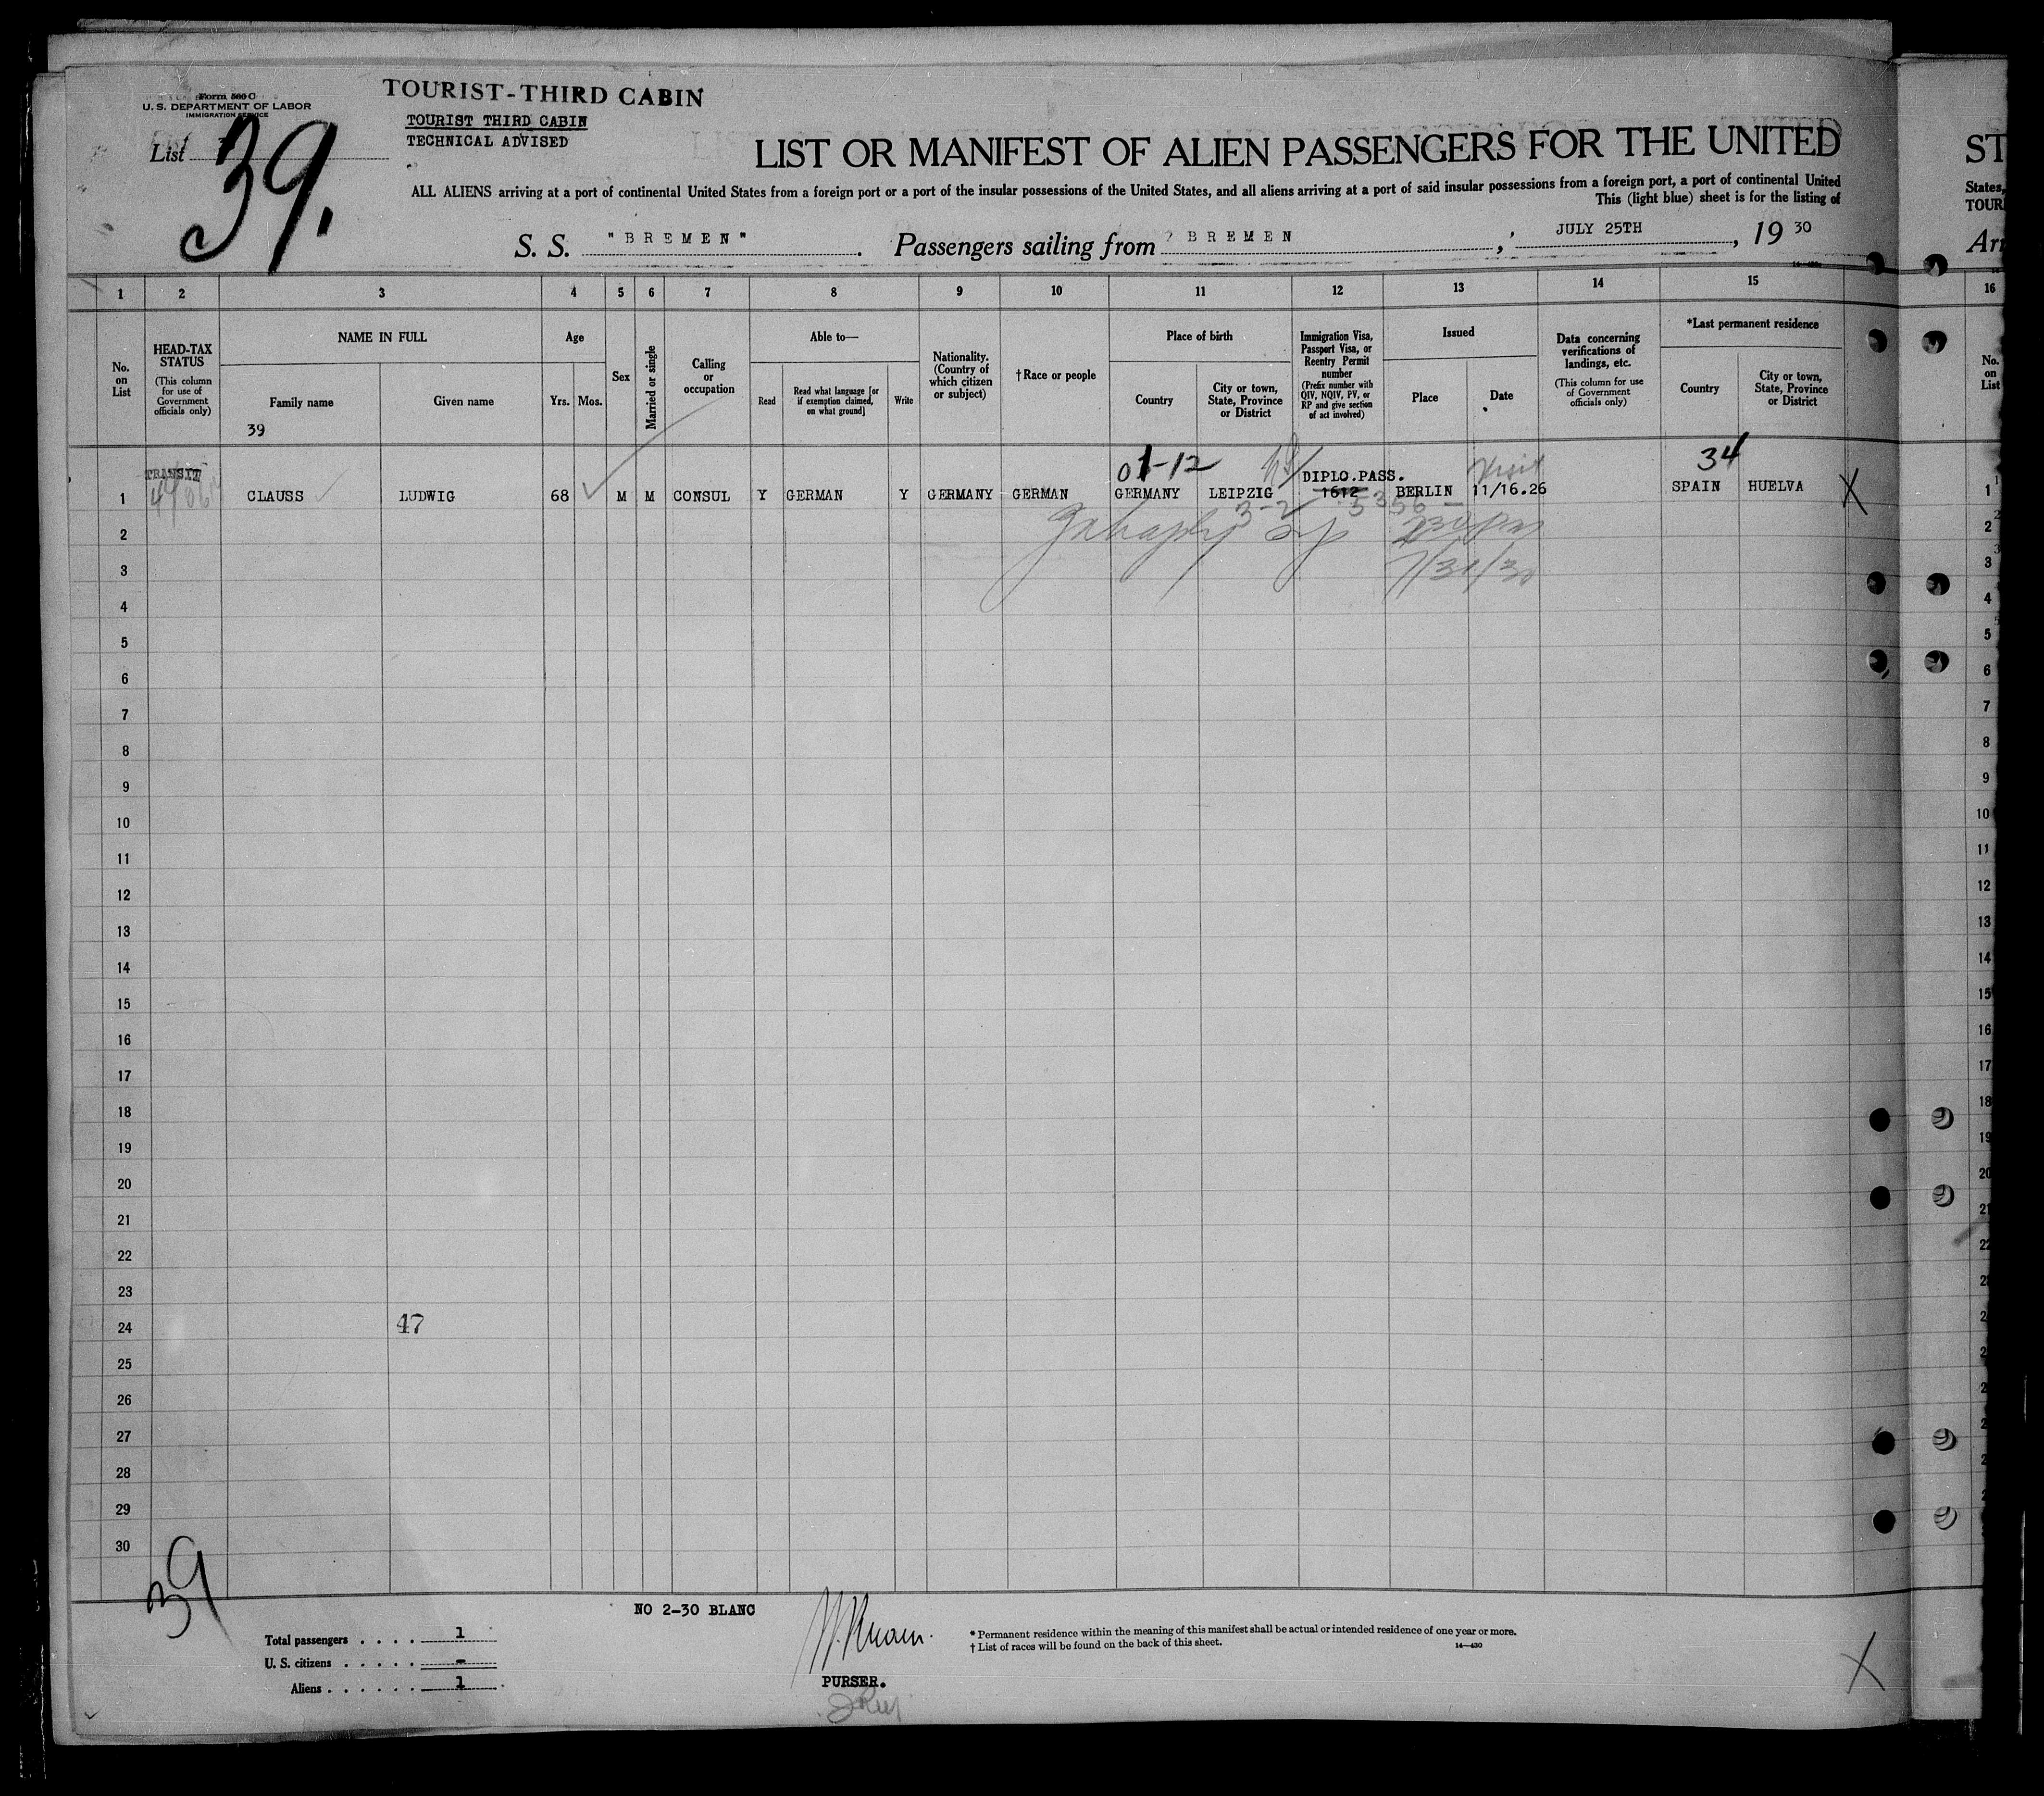 Form 500 C
U. S. DEPARTMENT OF LABOR
IMMIGRATION SERVICE
TOURIST-THIRD CABIN
TOURIST THIRD CABIN
TECHNICAL ADVISED
List 39.
LIST OR MANIFEST OF ALIEN PASSENGERS FOR THE UNITED
ST
ALL ALIENS arriving at a port of continental United States from a foreign port or a port of the insular possessions of the United States, and all aliens arriving at a port of said insular possessions from a foreign port, a port of continental United
States,
This (light blue) sheet is for the listing of
TOUR
S. S. "BREMEN". Passengers sailing from BREMEN, JULY 25TH, 19 30
Arr
1 2 3 4 5 6 7 8 9 10 11 12 13 14 15 16
No. on List
HEAD-TAX STATUS
(This column for use of Government officials only)
NAME IN FULL
Family name
Given name
39
Age
Yrs. Mos.
Sex
Married or single
Calling or occupation
Able to—
Read
Read what language [or if exemption claimed, on what ground]
Write
Nationality. (Country of which citizen or subject)
†Race or people
Place of birth
Country
City or town, State, Province or District
Immigration Visa, Passport Visa, or Reentry Permit number
(Prefix number with QIV, NQIV, PV, or RP and give section of act involved)
Issued
Place
Date
Data concerning verifications of landings, etc.
(This column for use of Government officials only)
*Last permanent residence
Country
City or town, State, Province or District
No. on List
01-12 Visit 34
TRANSIT DIPLO.PASS.
1 CLAUSS LUDWIG 68 M M CONSUL Y GERMAN Y GERMANY GERMAN GERMANY LEIPZIG 1612 BERLIN 11/16.26 SPAIN HUELVA X 1
3-2 5356
2 2
3 7/31/30 3
4 4
5 5
6 6
7 7
8 8
9 9
10 10
11 11
12 12
13 13
14 14
15 15
16 16
17 17
18 18
19 19
20 20
21 21
22 22
23
24 47
25
26
27
28
29
30
39
NO 2-30 BLANC
Total passengers . . . . 1
U. S. citizens . . . . . -
Aliens . . . . . . 1
PURSER.
* Permanent residence within the meaning of this manifest shall be actual or intended residence of one year or more.
† List of races will be found on the back of this sheet.
14—430
X